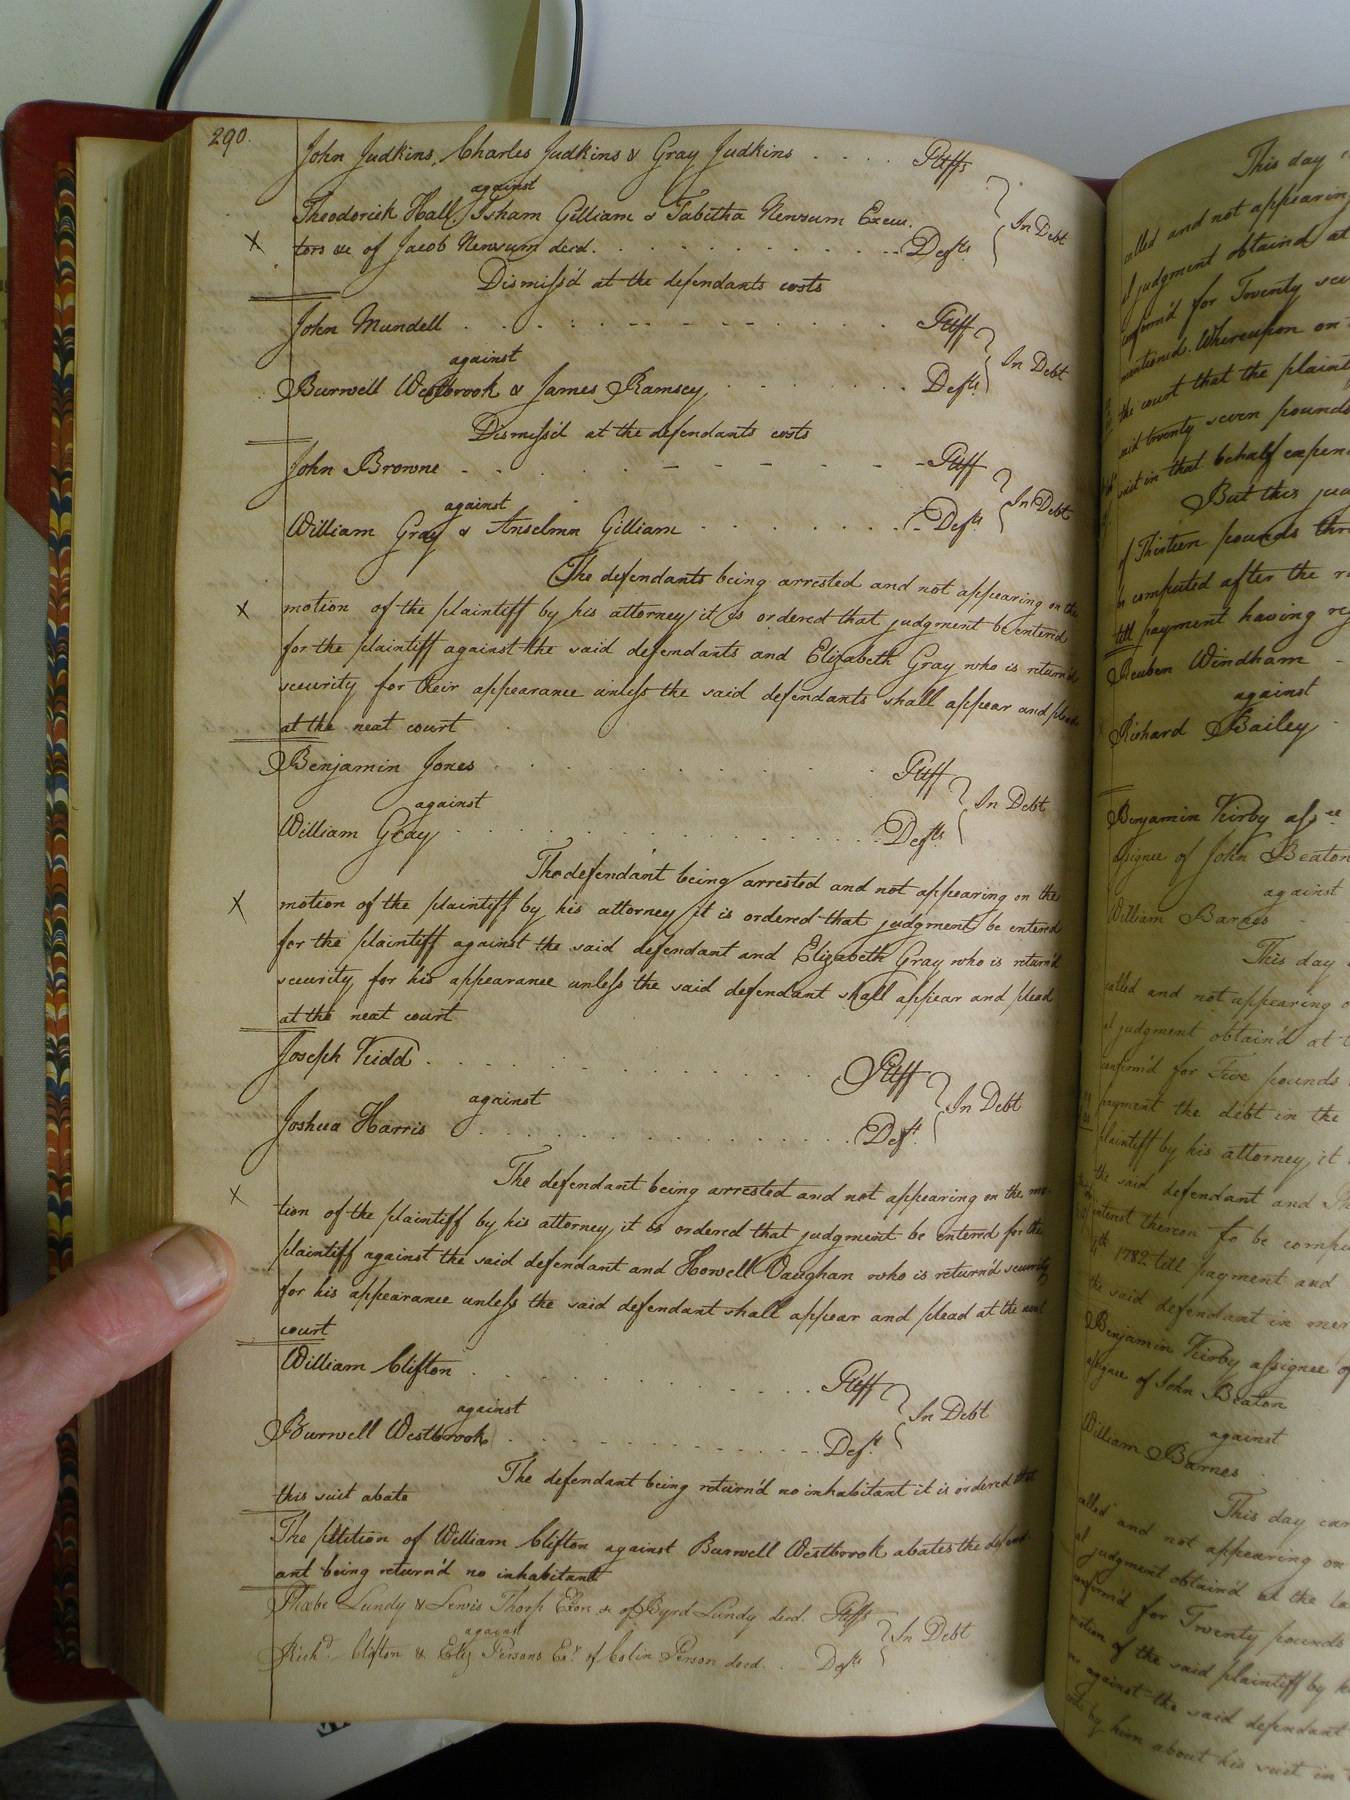 290.
John Judkins, Charles Judkins & Gray Judkins . . . . Pltffs
against
Theoderick Hall, Isham Gilliam & Tabitha Newsum Execu.
In Debt
X
tors &c of Jacob Newsum decd. Defts
Dismiss'd at the defendants costs
John Mundell Pltff
against
In Debt
Burwell Westbrook & James Ramsey Defts
Dismiss'd at the defendants costs
John Browne Pltff
against
In Debt
William Gray & Anselmn Gilliam Defts
The defendants being arrested and not appearing on the
X
motion of the plaintiff by his attorney it is ordered that judgment be entered
for the plaintiff against the said defendants and Elizabeth Gray who is return'd
security for their appearance unless the said defendants shall appear and plead
at the next court
Benjamin Jones Pltff
against
In Debt
William Gray Defts
The defendant being arrested and not appearing on the
X
motion of the plaintiff by his attorney it is ordered that judgment be entered
for the plaintiff against the said defendant and Elizabeth Gray who is return'd
security for his appearance unless the said defendant shall appear and plead
at the next court
Joseph Kidd Pltff
against
In Debt
Joshua Harris Deft.
The defendant being arrested and not appearing on the mo-
X
tion of the plaintiff by his attorney, it is ordered that judgment be entered for the
plaintiff against the said defendant and Howell Vaughan who is return'd security
for his appearance unless the said defendant shall appear and plead at the next
court
William Clifton Pltff
against
In Debt
Burwell Westbrook Deft
The defendant being return'd no inhabitant it is ordered that
this suit abate
The petition of William Clifton against Burwell Westbrook abates the defend-
ant being return'd no inhabitant
Phebe Lundy & Lewis Thorp Exors &c of Byrd Lundy decd. Pltffs
against
In Debt
Richd. Clifton & Eliz Persons Exr. of Colin Person decd. Defts
This day
called and not appearing
al judgment obtaind at
confirm'd for Twenty
mentioned. Whereupon on
the court that the plaint
said twenty seven pounds
suit in that behalf expen
But this jud
of Thirteen pounds thr
be computed after the
till payment having re
Reuben Windham
against
Richard Bailey
Benjamin Kirby assee
assignee of John Beaton
against
William Barnes
This day
called and not appearing
al judgment obtain'd at t
confirm'd for Five pounds
payment the debt in the
plaintiff by his attorney, it
the said defendant and
interest thereon to be compu
1782 till payment and
the said defendant in mer
Benjamin Kirby assignee of
assignee of John Beaton
against
William Barnes
This day cam
called and not appearing on
al judgment obtain'd at the la
confirm'd for Twenty pounds
motion of the said plaintiff by h
against the said defendant
by him about his suit in